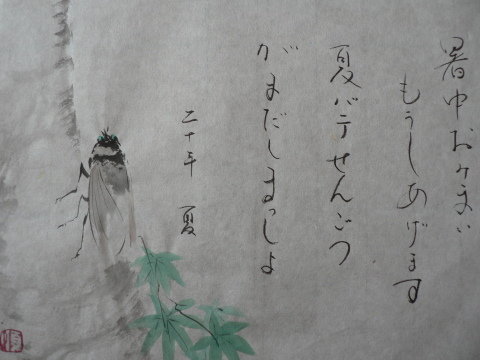 暑中おみまい
もうしあげます
夏バテせんごつ
がまだしまっしょ
二十年 夏